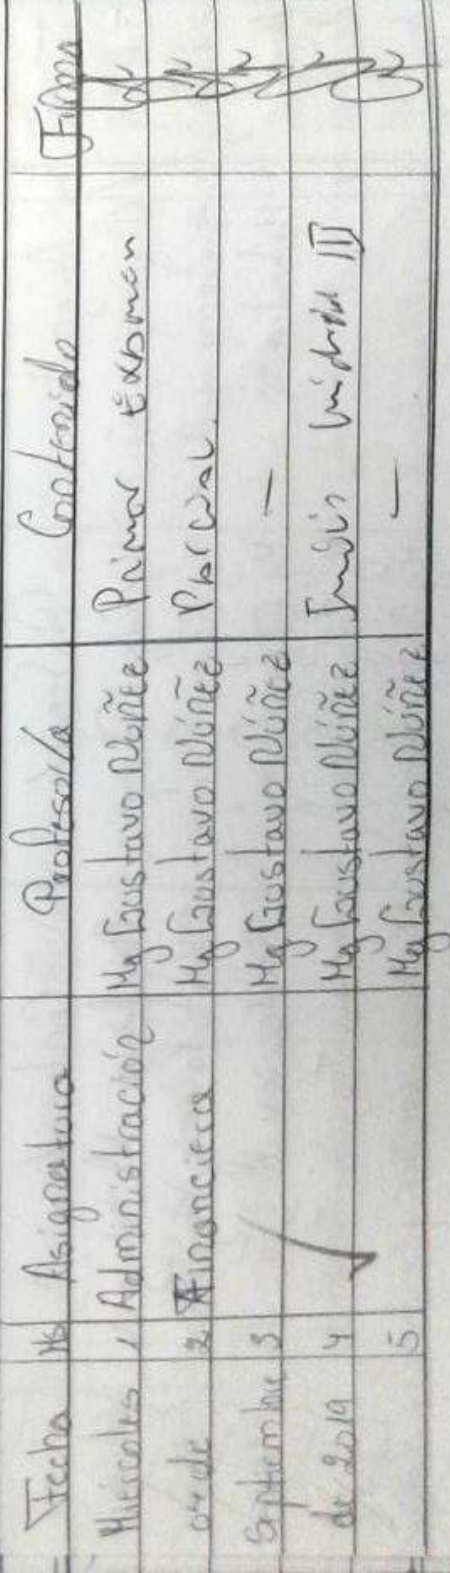 Fecha Hs Asignatura Profesor/a Contenido Firma
Miércoles 1 Administración Mg Gustavo Núñez Primer Examen
04 de 2 Financiera Mg Gustavo Núñez Parcial
Septiembre 3 Mg Gustavo Núñez —
de 2019 4 Mg Gustavo Núñez Unidad III
5 Mg Gustavo Núñez —